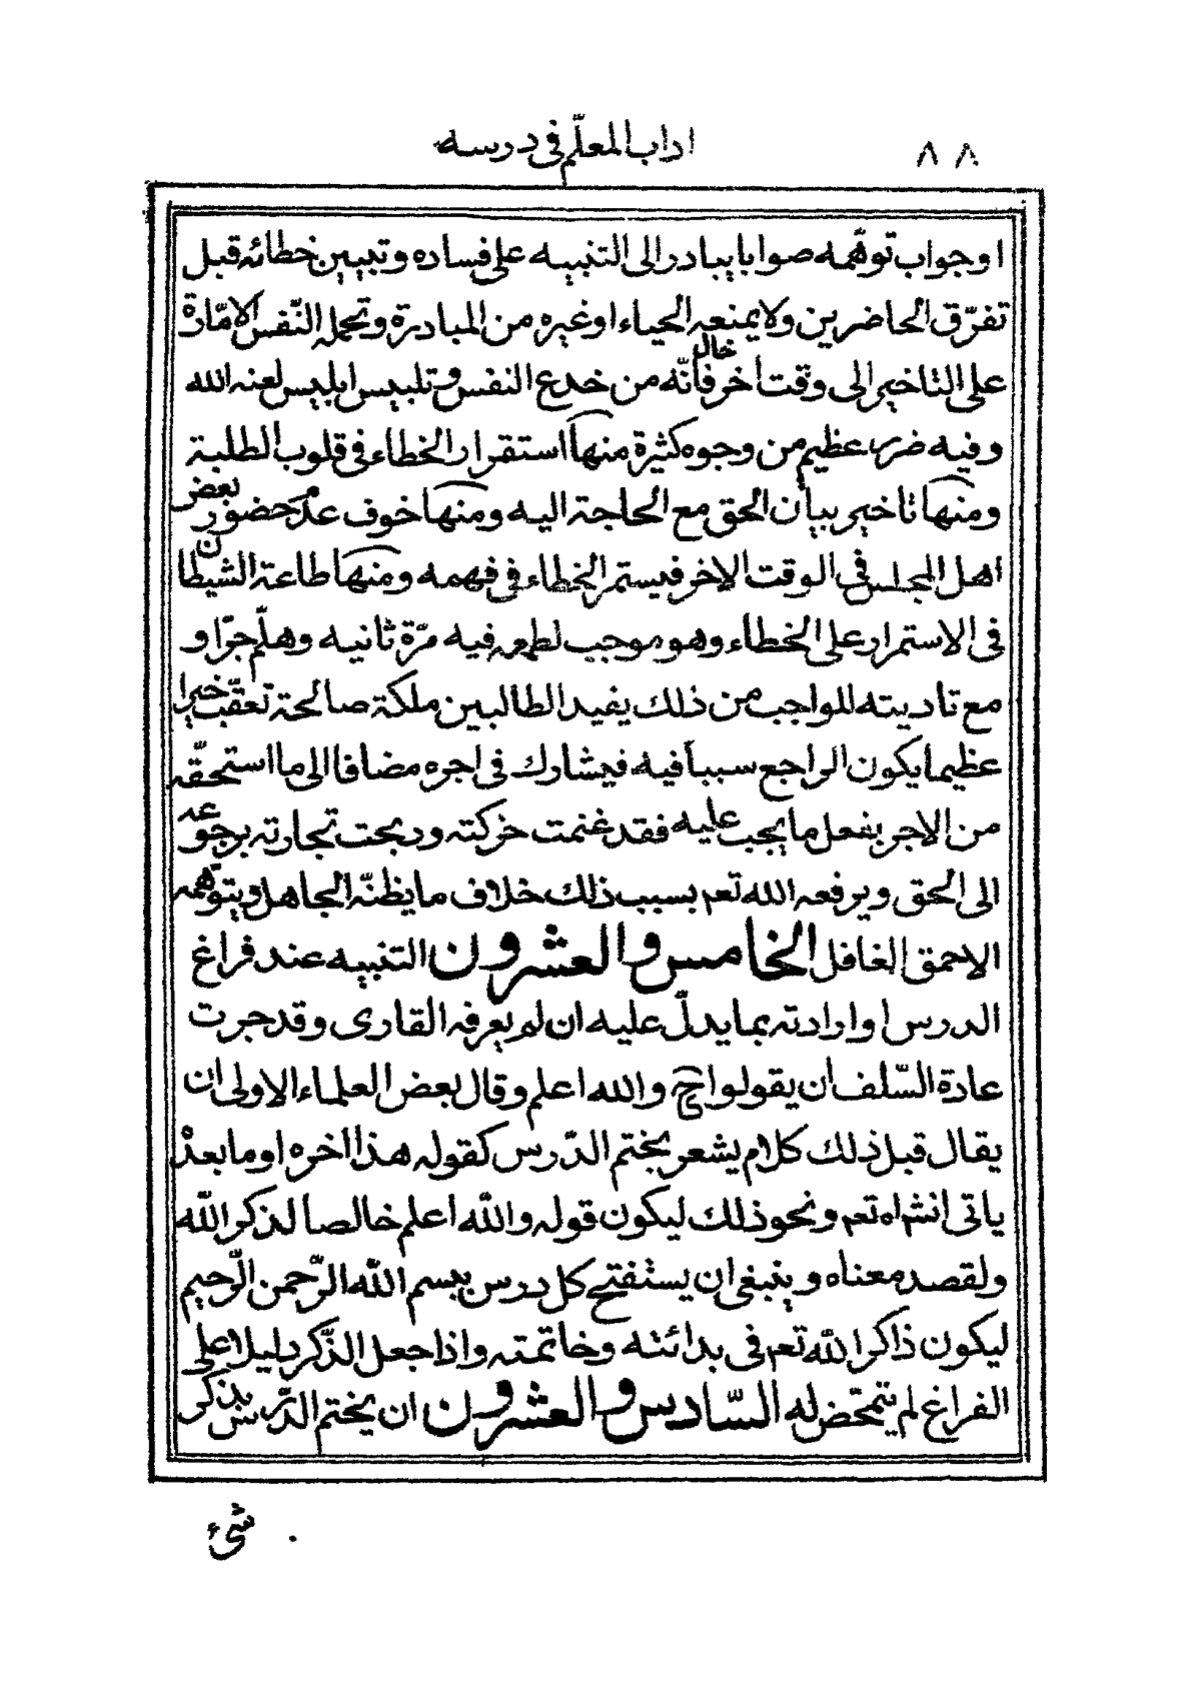 ٨٨
اداب المعلّم فى درسه
او جواب توهّمه صوابا يبادر الى التنبيه على فساده وتبيين خطائه قبل
تفرّق الحاضرين ولا يمنعه الحياء او غيره من المبادرة وتحمله النّفس الامّارة
على التاخير الى وقت اخر خال فانّه من خدع النفس وتلبيس ابليس لعنه الله
وفيه ضرر عظيم من وجوه كثيرة منها استقرار الخطاء فى قلوب الطلبة
ومنها تاخير بيان الحق مع الحاجة اليه ومنها خوف عدم حضور بعض
اهل المجلس فى الوقت الاخر فيستمر الخطاء فى فهمه ومنها طاعة الشيطان
فى الاستمرار على الخطاء وهو موجب لطمعه فيه مرّة ثانيه وهلّم جرّا و
مع تاديته للواجب من ذلك يفيد الطالبين ملكة صالحة تعقّب خيرا
عظيما يكون الراجع سببا فيه فيشارك فى اجره مضافا الى ما استحقّه
من الاجر بفعل ما يجب عليه فقد غنمت حركته وربحت تجارته برجوعه
الى الحق ويرفعه الله تعم بسبب ذلك خلاف ما يظنّه الجاهل ويتوهّمه
الاحمق الغافل الخامس والعشرون التنبيه عند فراغ
الدرس او ارادته بما يدلّ عليه ان لم يعرفه القارى وقد جرت
عادة السّلف ان يقولوا ح والله اعلم وقال بعض العلماء الاولى ان
يقال قبل ذلك كلام يشعر بختم الدّرس كقوله هذا اخره او ما بعده
ياتى انشاه تعم ونحو ذلك ليكون قوله والله اعلم خالصا لذكر الله
ولقصد معناه وينبغى ان يستفتح كل درس ببسم الله الرّحمن الرّحيم
ليكون ذاكرا لله تعم فى بدائته وخاتمته واذا جعل الذّكر دليلا على
الفراغ لم يتمحّض له السّادس والعشرون ان يختم الدّرس بذكر
شىء